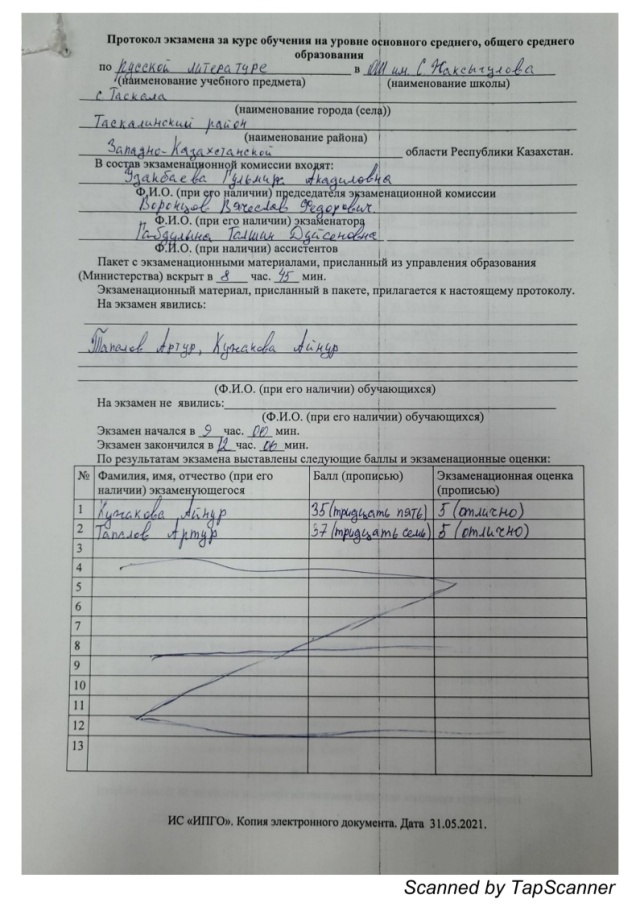 Протокол экзамена за курс обучения на уровне основного среднего, общего среднего
образования
по русской литературе в ОШ им. С
(наименование учебного предмета) (наименование школы)
с Таскала
(наименование города (села))
Таскалинский район
(наименование района)
Западно-Казахстанской области Республики Казахстан.
В состав экзаменационной комиссии входят:
Узакбаева Гульмира
Ф.И.О. (при его наличии) председателя экзаменационной комиссии
Воронцов Вячеслав Федорович
Ф.И.О. (при его наличии) экзаменатора
Габдулина Талшин Дуйсеновна
Ф.И.О. (при наличии) ассистентов
Пакет с экзаменационными материалами, присланный из управления образования
(Министерства) вскрыт в 8 час. 45 мин.
Экзаменационный материал, присланный в пакете, прилагается к настоящему протоколу.
На экзамен явились:
Тапалов Артур, Кужакова Айнур
(Ф.И.О. (при его наличии) обучающихся)
На экзамен не явились:
(Ф.И.О. (при его наличии) обучающихся)
Экзамен начался в 9 час. 00 мин.
Экзамен закончился в 12 час. 00 мин.
По результатам экзамена выставлены следующие баллы и экзаменационные оценки:
№ Фамилия, имя, отчество (при его наличии) экзаменующегося Балл (прописью) Экзаменационная оценка (прописью)
1 Кужакова Айнур 35 (тридцать пять) 5 (отлично)
2 Тапалов Артур 37 (тридцать семь) 5 (отлично)
3
4
5
6
7
8
9
10
11
12
13
ИС «ИПГО». Копия электронного документа. Дата 31.05.2021.
Scanned by TapScanner